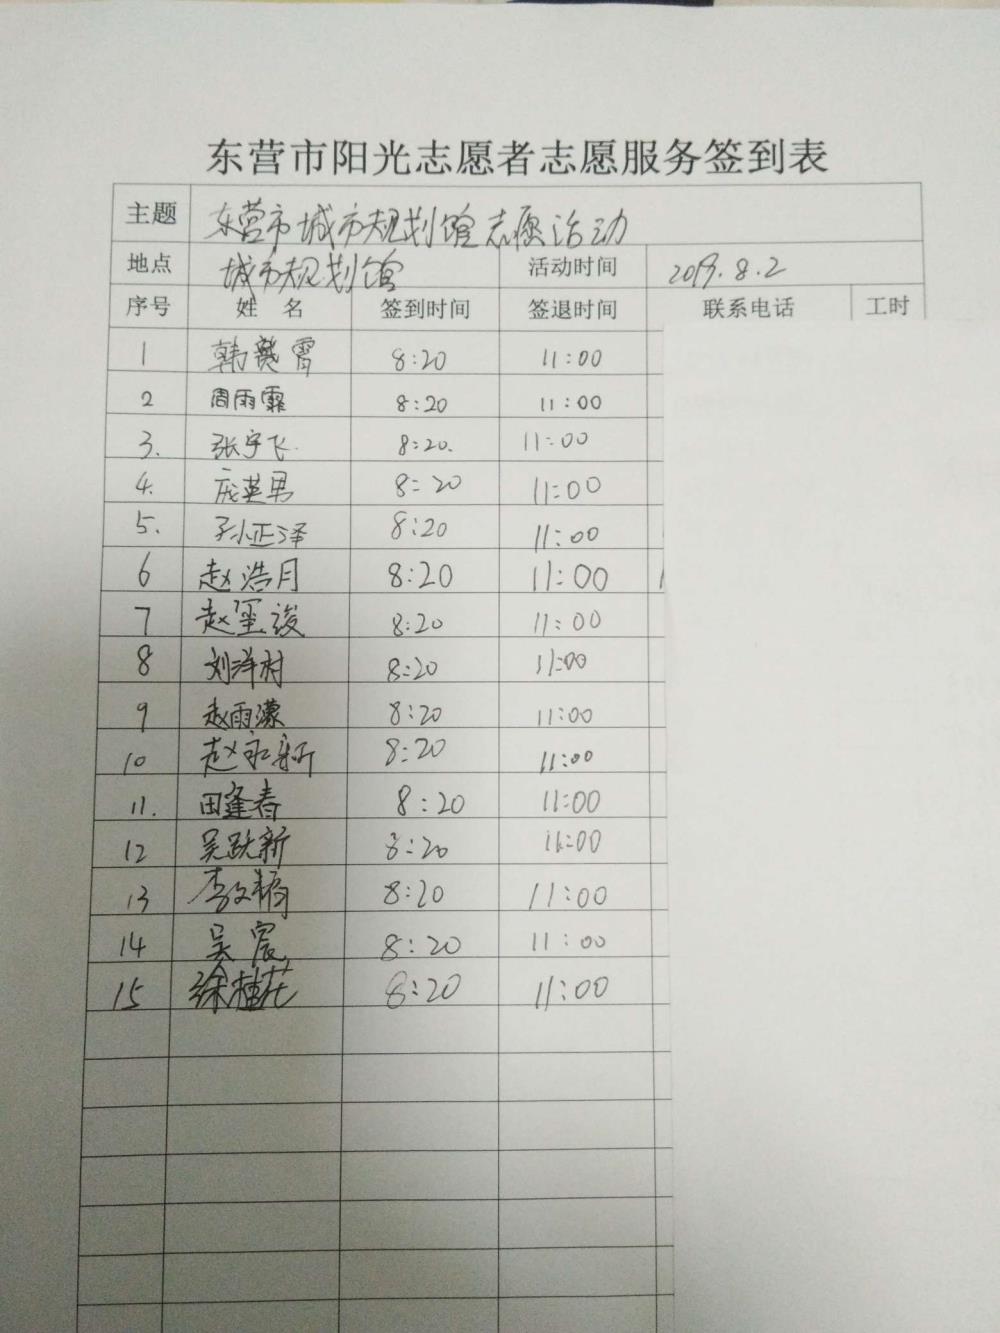 东营市阳光志愿者志愿服务签到表
主题 东营市城市规划馆志愿活动
地点 城市规划馆 活动时间 2019.8.2
序号 姓名 签到时间 签退时间 联系电话 工时
1 韩 霄 8:20 11:00
2 周雨霏 8:20 11:00
3. 张宇飞. 8:20. 11:00
4. 庞英男 8:20 11:00
5. 孙正泽 8:20 11:00
6 赵浩月 8:20 11:00
7 赵玺骏 8:20 11:00
8 刘洋村 8:20 11:00
9 赵雨濛 8:20 11:00
10 赵永新 8:20 11:00
11. 田逢春 8:20 11:00
12 吴跃新 8:20 11:00
13 李文 8:20 11:00
14 吴宸 8:20 11:00
15 徐桂花 8:20 11:00